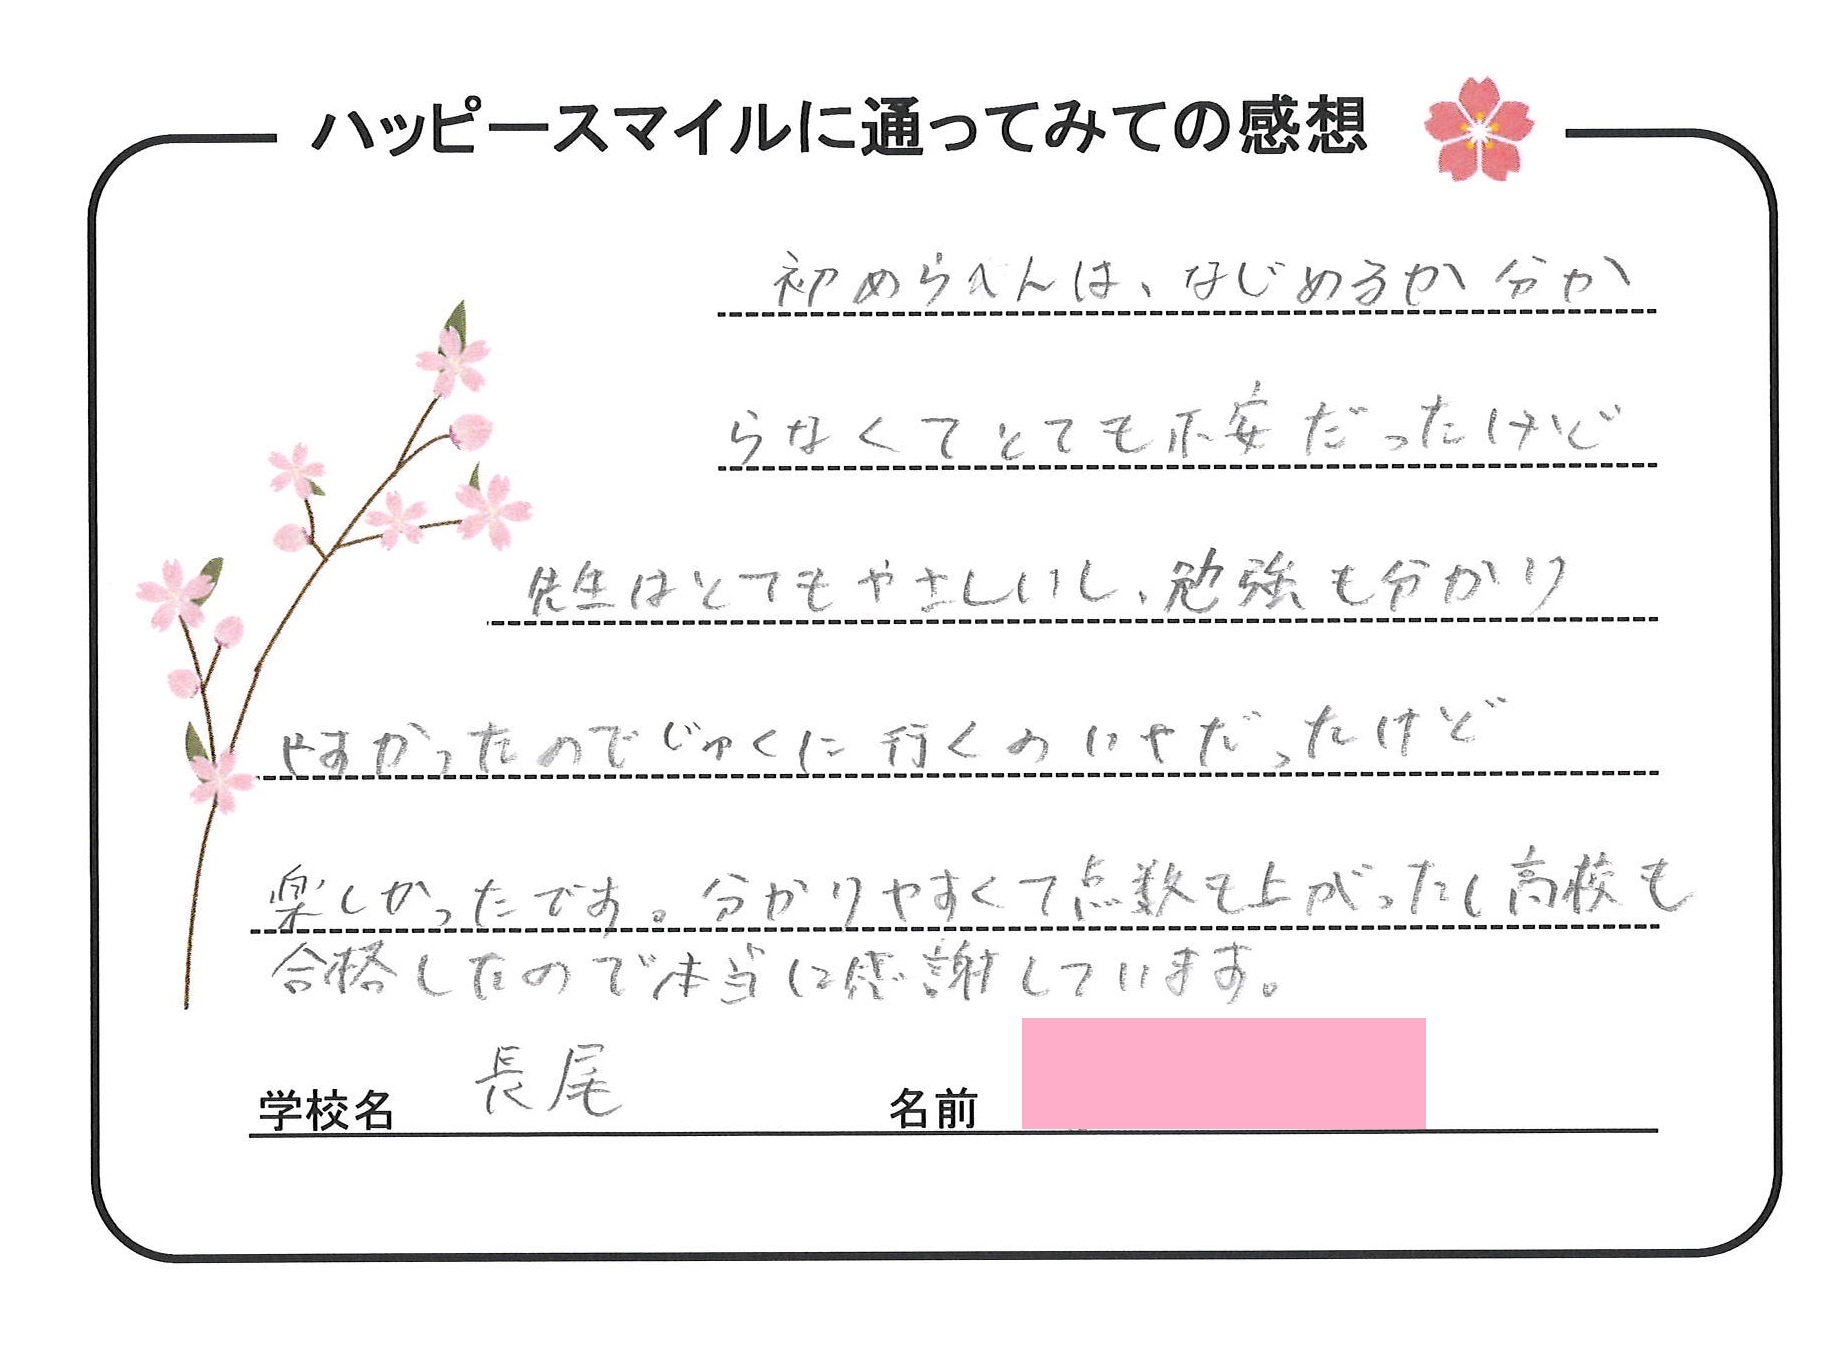 ハッピースマイルに通ってみての感想
初めらへんは、なじめるか分か
らなくてとても不安だったけど
先生はとてもやさしいし、勉強も分かり
やすかったのでじゅくに行くのいやだったけど
楽しかったです。分かりやすくて点数も上がったし高校も
合格したので本当に感謝しています。
学校名 長尾 名前